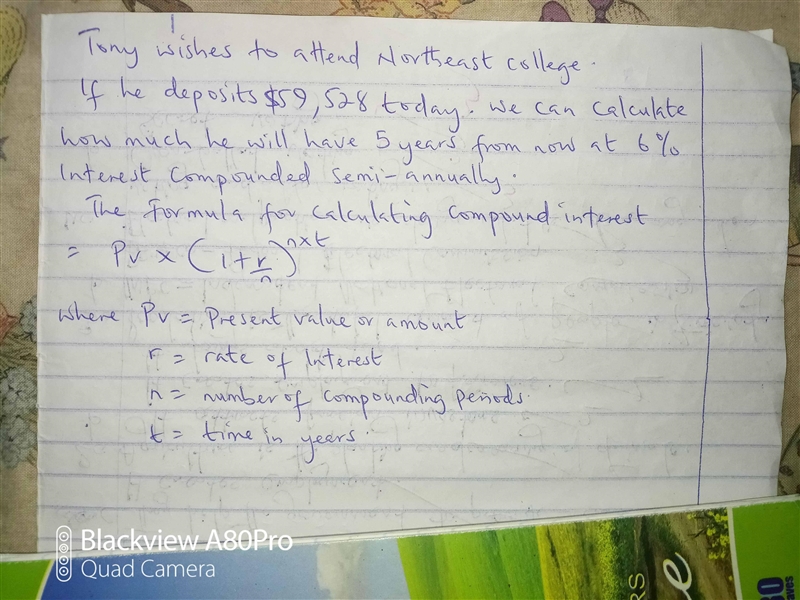 Tony wishes to attend Northeast college.
If he deposits $59,528 today. We can calculate
how much he will have 5 years from now at 6%
Interest compounded semi-annually.
The formula for calculating compound interest
= Pv × (1 + r/n)^n×t
where Pv = Present value or amount
r = rate of Interest
n = number of compounding periods.
t = time in years.
Blackview A80Pro
Quad Camera
RS
e
80
aves